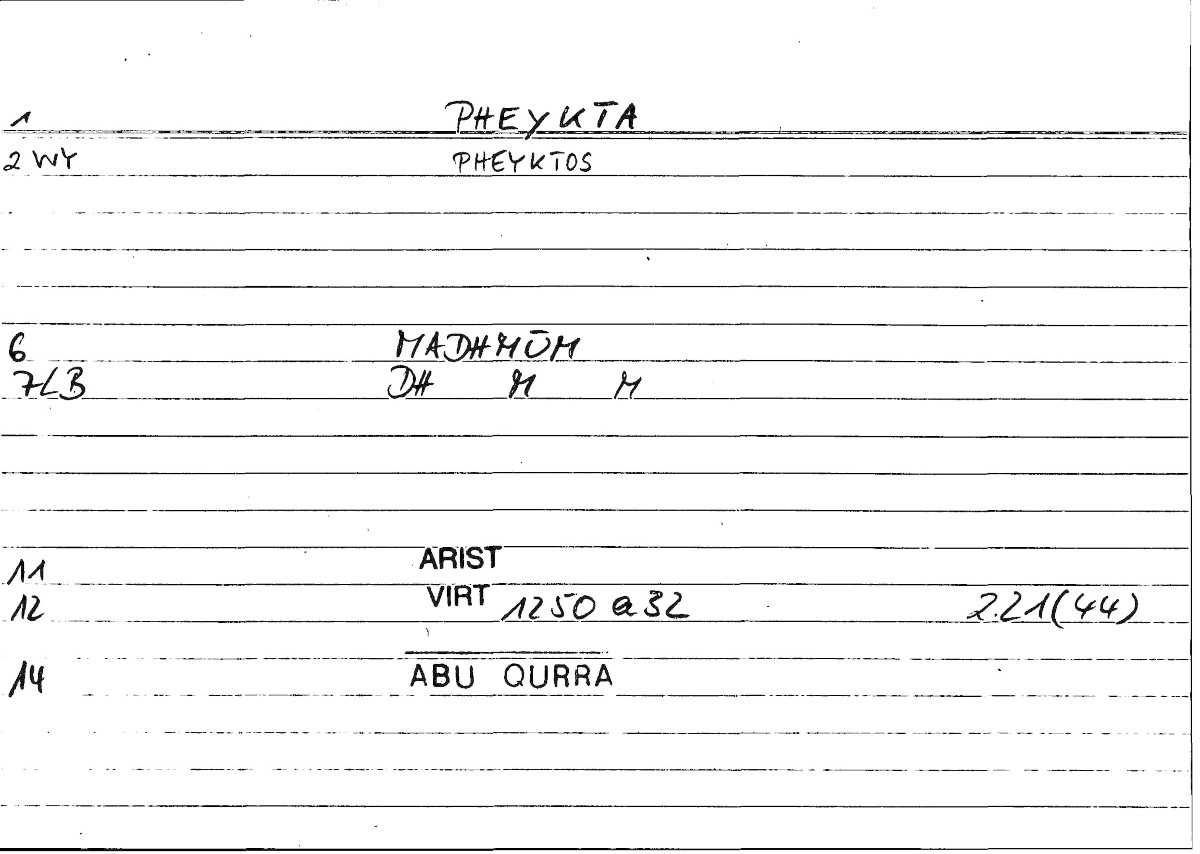 1 PHEYKTA
2 WY PHEYKTOS
6 MADHMŪM
7LB DH M M
11 ARIST
12 VIRT 1250 a 32 2.21(44)
14 ABU QURRA